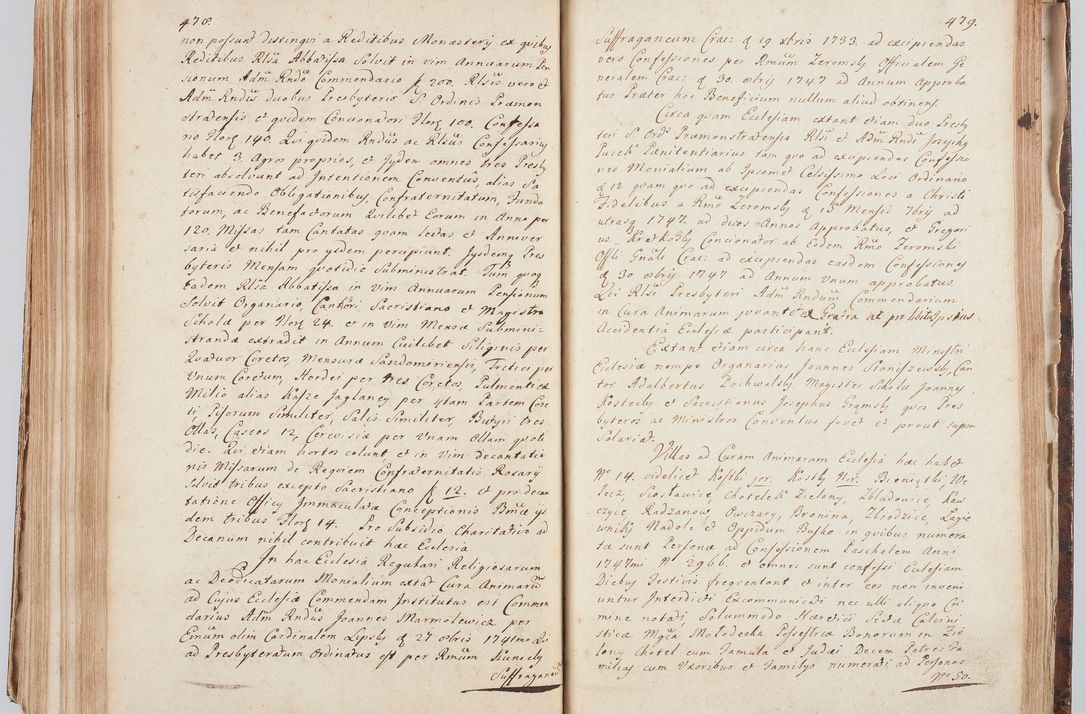 478.
non possunt distingvi a Reditibus Monasterij ex quibus
Reditibus Rlsa Abbatissa Solvit in vim Annuarum Pen
sionum Adm Rndo Commendario f 200. Rlsis vero et
Adm Rndis duobus Presbyteris S. Ordinis Præmon
stratensis et quidem Concionatori Flor 100. Confessa
rio Flor 140. Qui quidem Rndus ac Rlsus Confessarius
habet 3 Agros proprios, et Iydem omnes tres Presby
teri absolvunt ad Intentionem Conventus, alias Sa
tisfaciendo Obligationibus, Confraternitatum, Funda
torum, ac Benefactorum Quilibet Eorum in Anno per
120. Missas tam Cantatas quam lectas et Anniver
saria et nihil pro ijsdem percipiunt. Iysdemq Pres
byteris Mensam quotidie Subministrat. Tum quoq
Eadem Rlsa Abbatissa in vim Annuarum Pensionum
Solvit Organario, Cantori Sacristiano et Magistro
Scholæ per Flor 24. et in vim Mensæ Submini-
strandæ extradit in Annum Cuilibet Siliginis per
Quatuor Coretos, Mensuræ Sandomiriensis, Tritici per
Unum Coretum, Hordei per tres Coretos, Pulmenti ex
Milio alias Kasze Jaglaney per 4tam Partem Core
ti, Pisorum Similiter, Salis Similiter, Butyri tres
Ollas, Caseos 12, Cerevisiæ per Unam Ollam quoti
die. Qui etiam hortos colunt et in vim decantatio
nis Missarum de Requiem Confraternitatis Rosarij
Solvit tribus excepto Sacristiano f 12. et pro decan
tatione Officij Immaculatæ Conceptionis Bmæ ys
dem tribus Flor 14. Pro Subsidio Charitativo ad
Decanum nihil contribuit hæc Ecclesia
In hac Ecclesia Regulari Religiosarum
ac Deo dicatarum Monialium extat Cura Animarum
ad Cujus Ecclesiæ Commendam Institutus est Commen
darius Adm Rndus Joannes Marmolewicz per
Emum olim Cardinalem Lipsky d 27 8bris 1741mo Qui
ad Presbyteratum Ordinatus est per Rmum Kunicky
Suffraganeum
479.
Suffraganeum Crac: d 19 xbris 1733. ad excipiendas
vero Confessiones per Rmum Zeromsky Officialem Ge
neralem Crac: d 30. 8bris 1747 ad Annum Approba
tus Præter hoc Beneficium nullum aliud obtinens.
Circa quam Ecclesiam extant etiam duo Presby
teri S. Ord: Præmonstratensis Rlsi et Adm Rndi Josephus
Pucek Pænitentiarius tam quo ad excipiendas Confessio
nes Monialium ab Ipsomet Celsissimo Loci Ordinario
d 12 quam quo ad excipiendas Confessiones a Christi
Fidelibus a Rmo Zeromsky d 15 Mensis 7bris ad
utrasq 1747. ad duos Annos Approbatus, et Gregori
us Krzetkosky Concionator ab Eodem Rmo Zeromski
Offli Gnali Crac: ad excipiendas easdem Confessiones
d 30 8bris 1747 ad Annum Unum approbatus
Qui Rlsi Presbyteri Adm Rndum Commendarium
in Cura Animarum juvant ex Gratia at pro libitu Ipsius
Accidentia Ecclesiæ participant.
Extant etiam circa hanc Ecclesiam Ministri
Ecclesiæ nempe Organarius Joannes Staniszewsky, Can
tor Adalbertus Zochwalsky Magister Scholæ Joannes
Kostecky et Sacristianus Josephus Gramsky quos Pres
byteros ac Ministros Conventus fovet et prout supra
Salariat.
Villas ad Curam Animarum Ecclesia hæc habet
No 14. videlicet Kostki jor. Kostky Mor. Bieniątki We
lecz, Siosławice, Chotelek Zielony, Zbludowice, Kaw
czyce, Radzanow, Owczary, Bronina, Zbrodzice, Łagie
wniky Nadole et Oppidum Busko in quibus numera
tæ sunt Personæ ad Confessionem Paschalem Anni
1747mi No 2966. et omnes sunt confessi Ecclesiam
Diebus Festivis frequentant et inter eos non inveni
untur Interdicti Excommunicati nec ulli aliquo Cri
mine notati, Solummodo Hæretici Sectæ Calvini
sticæ Mgca Małodecka Possestrix Bonorum in Zie
lony Chotel cum Famula et Judæi Decem Patres Fa
milias cum Uxoribus et Familys numerati ad Personas
No 50.